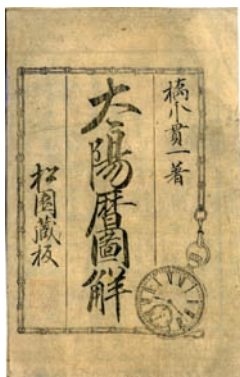 橋爪貫一著
太陽暦圖解
松園蔵板